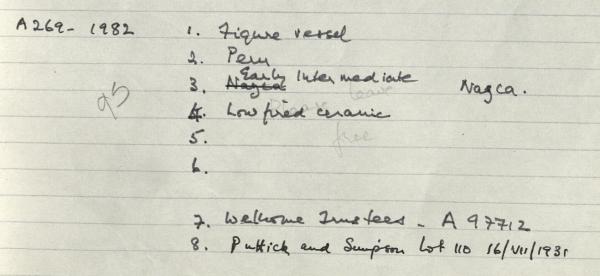 A269- 1982 1. Figure vessel
2. Peru
3. Nazca Early Intermediate Nazca.
4. Low fired ceramic
5.
6.
7. Wellcome Trustees - A 97712
8. Puttick and Simpson Lot 110 16/VII/1931